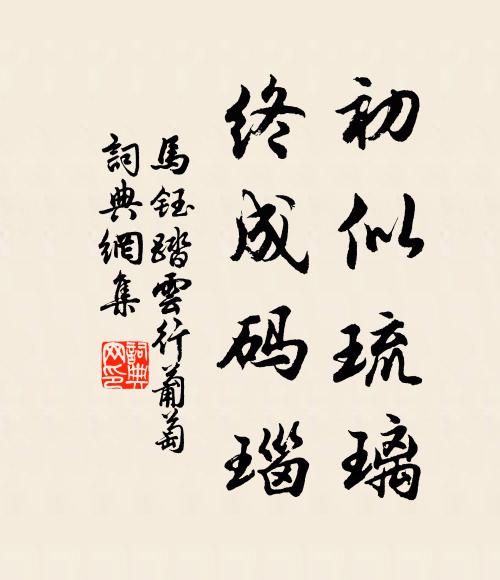 初似琉璃
终成码瑙
馬鈺踏雲行葡萄
詞典網集
詞典網印